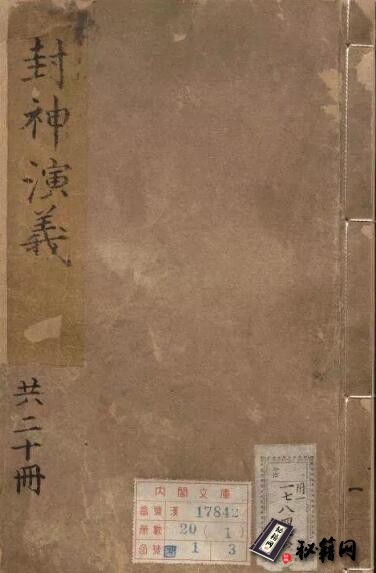 封神演義
共二十冊
內閣文庫
番號 漢 17842
冊數 20 (1)
函號 1 3
一七八
一
秘籍网